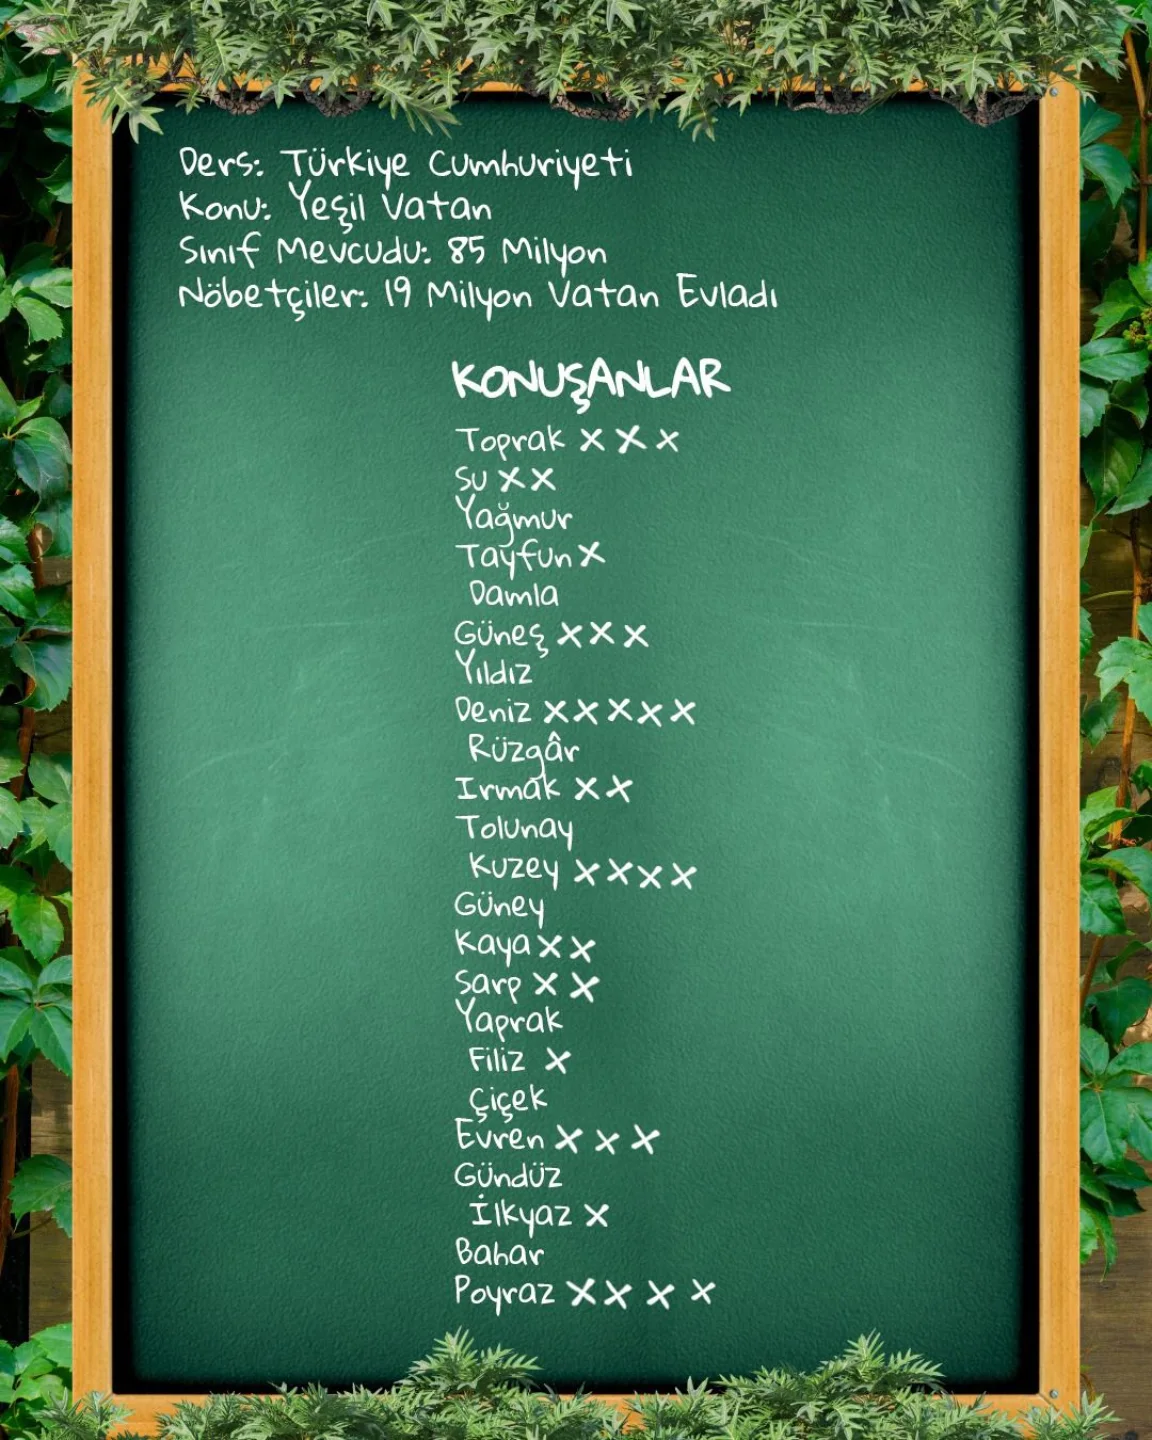 Ders: Türkiye Cumhuriyeti
Konu: Yeşil Vatan
Sınıf Mevcudu: 85 Milyon
Nöbetçiler: 19 Milyon Vatan Evladı
KONUŞANLAR
Toprak x x x
Su x x
Yağmur
Tayfun x
Damla
Güneş x x x
Yıldız
Deniz x x x x x
Rüzgâr
Irmak x x
Tolunay
Kuzey x x x x
Güney
Kaya x x
Sarp x x
Yaprak
Filiz x
Çiçek
Evren x x x
Gündüz
İlkyaz x
Bahar
Poyraz x x x x